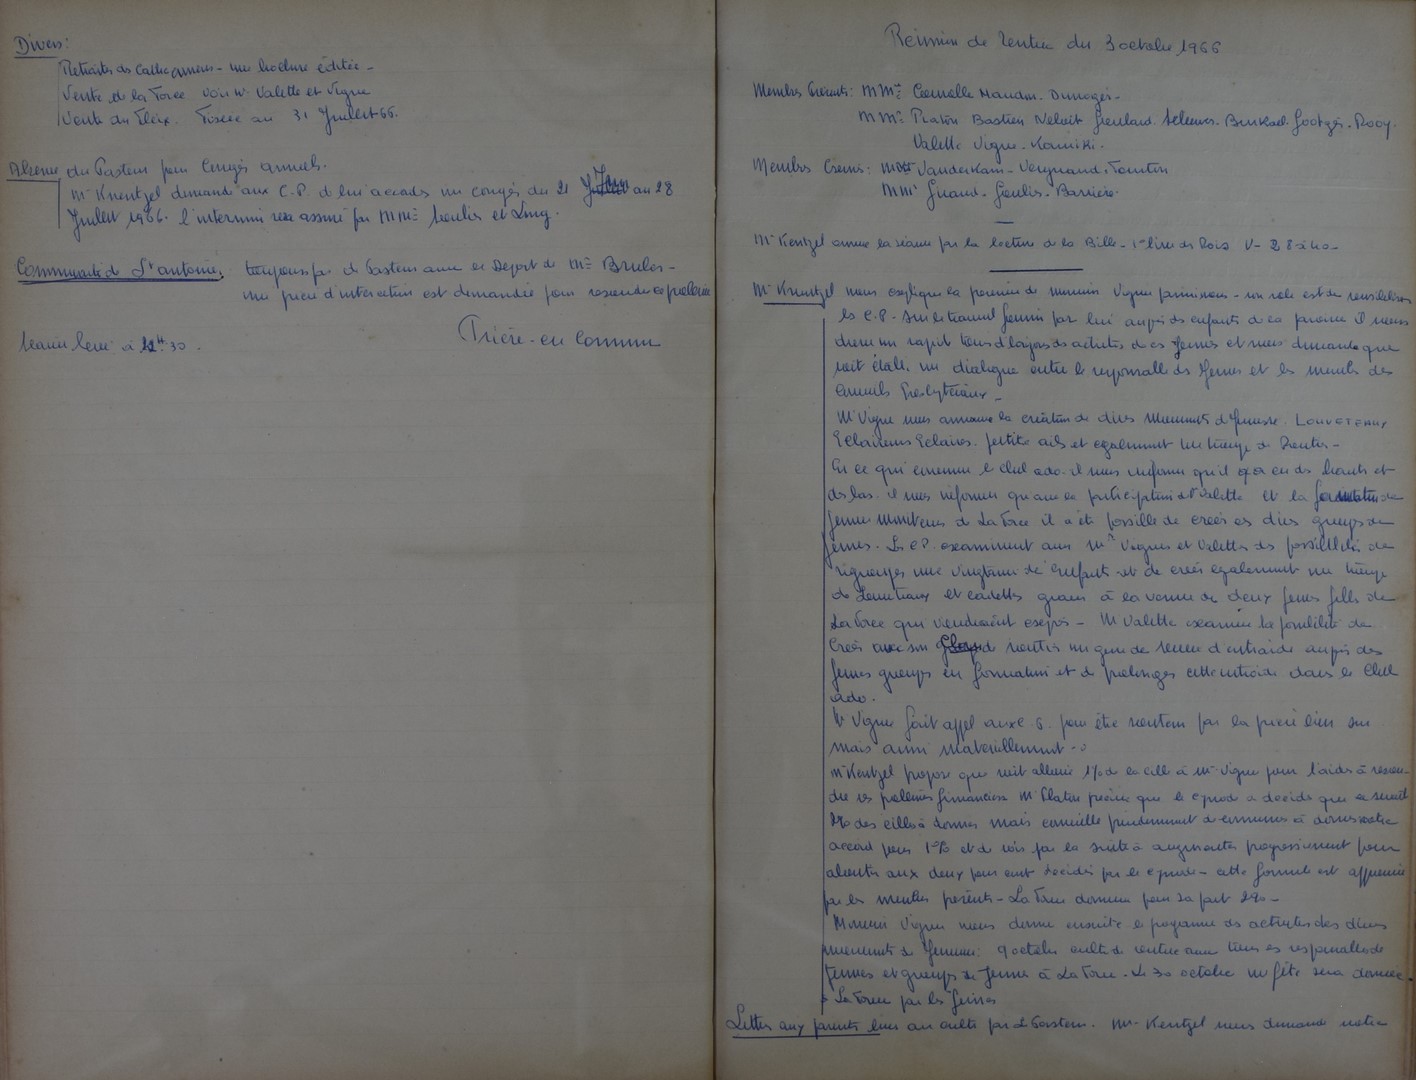 Divers:
Retraites des Cathecumenes - une brochure éditée -
Vente de la Force voir Mr Valette et Vigne
Vente du Fleix. Fixée au 31 Juillet 66.
Absence du Pasteur pour Congés annuels.
Mr Kneutzel demande aux C.P. de lui accorder un congés du 21 au 28
Juillet 1966. l'interim sera assuré par MMrs et
Communauté de St Antoine: du Pasteur avec le Depart de Mr
une d'intercession est demandée pour resoudre ce probleme
Seance levée à 12H30.
Prière en Commun
Réunion de rentrée du 3 octobre 1966
Membres Présents: MMme
MMr Platon Bastien
Valette Vigne
Membres Excusés: Vanderkam - Vergnaud.
MMr Barrière.
Mr Kentzel ouvre la séance par la lecture de la Bible - 1er livre des Rois V - 28 à 40 -
Mr Kneutzel nous explique la présence de monsieur Vigne parmi nous - son role est de sensibiliser
les C.P. sur le travail fourni par lui auprès des enfants de la paroisse il nous
dresse un rapide tour d'horizon des activités de ces Jeunes et nous demande que
soit établi un dialogue entre le responsable des Jeunes et les membres des
Conseils Presbytéraux -
Mr Vigne nous annonce la création de divers Mouvements de Jeunesse. LOUVETEAUX
Eclaireurs Eclaires. petites ailes et egalement une troupe de Routiers -
En ce qui concerne le club ado. il nous informe qu'il y a eu des hauts et
des bas. il nous informe qu'avec la participation de Mr Valette et la formation de
Jeunes moniteurs de La Force il a été possible de créer ces divers groupes de
Jeunes. Les C.P. examinent avec Mrs Vignes et Valette des possibilités de
regrouper une vingtaine de enfants et de créer egalement une troupe
de Louveteaux et cadettes grace à la venue de deux Jeunes filles de
La Force qui viendraient exprès - Mr Valette examine la possibilité de
Créer avec son de routiers un genre de reseau d'entraide auprès des
Jeunes groupes en formation et de prolonger cette entraide dans le Club
ado.
Mr Vigne fait appel aux C.P. pour être soutenu par la prière bien sur
mais aussi materiellement -
Mr Kentzel propose que soit allouée 1% de la cible à Mr Vigne pour l'aider à resou-
dre ces problèmes financiers Mr Platon précise que le synode a décidé que ce serait
2% des cibles à donner mais conseille prudemment de commencer à donner notre
accord pour 1% et de voir par la suite à augmenter progressivement pour
aboutir aux deux pour cent décidés par le synode - cette formule est appréciée
par les membres présents - La Force donnera pour sa part 2% -
Monsieur Vigne nous donne ensuite le programme des activités des divers
mouvements de Jeunesse: 9 octobre culte de rentrée avec tous les responsables de
Jeunes et groupes de Jeunes à La Force - Le 30 octobre une fête sera donnée
à La Force par les Jeunes
Lettre aux parents lue au culte par le Pasteur. Mr Kentzel nous demande notre